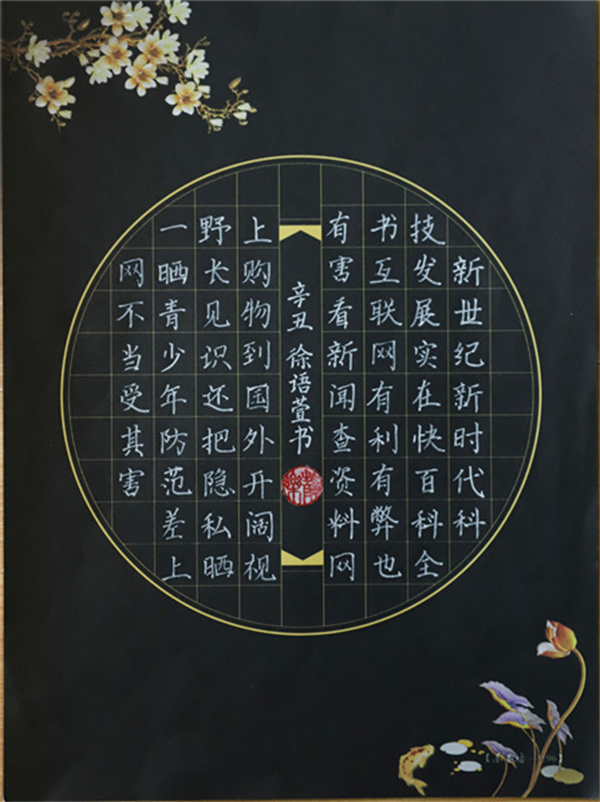 新世纪新时代科
技发展实在快百科全
书互联网有利有弊也
有害看新闻查资料网
辛丑 徐语萱书
上购物到国外开阔视
野长见识还把隐私晒
一晒青少年防范差上
网不当受其害